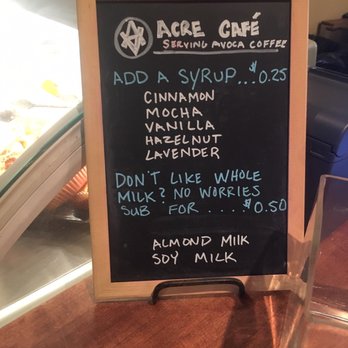 ACRE CAFÉ
SERVING AVOCA COFFEE
ADD A SYRUP...$0.25
CINNAMON
MOCHA
VANILLA
HAZELNUT
LAVENDER
DON'T LIKE WHOLE
MILK? NO WORRIES
SUB FOR ....$0.50
ALMOND MILK
SOY MILK